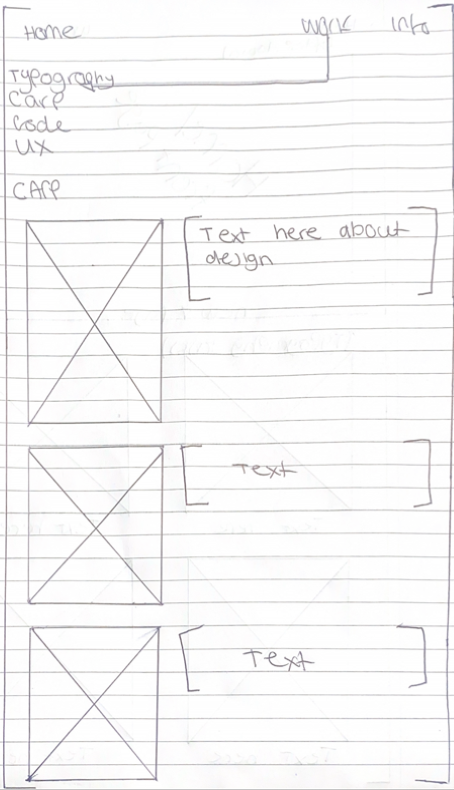 Home Work Info
Typography
Carp
Code
UX
CARP
Text here about
design
Text
Text